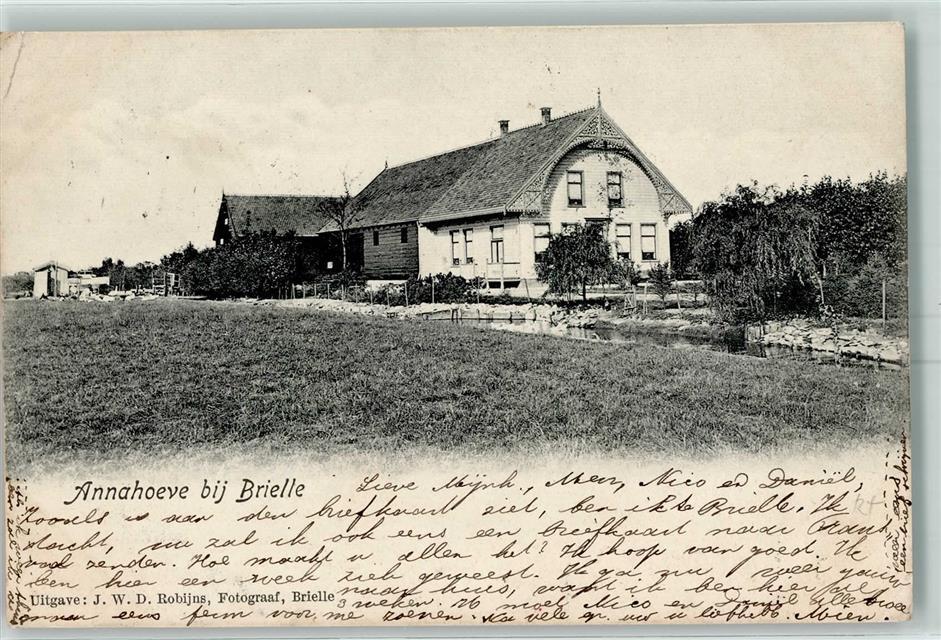 Annahoeve bij Brielle
Lieve Mijnh., Mevr, Nico en Daniël,
Zooals u aan den briefkaart ziet, ben ik te Brielle. Ik
dacht, nu zal ik ook eens een briefkaart naar
zenden. Hoe maakt u allen het? Ik hoop van goed. Ik
ben hier een week ziek geweest. Ik ga nu weer gauw
naar huis, want ik ben hier al
Uitgave: J. W. D. Robijns, Fotograaf, Brielle
3 weken. U moet Nico en Daniël alle twee
eens ferm voor me zoenen. Na vele gr. uw u liefh. Mien.